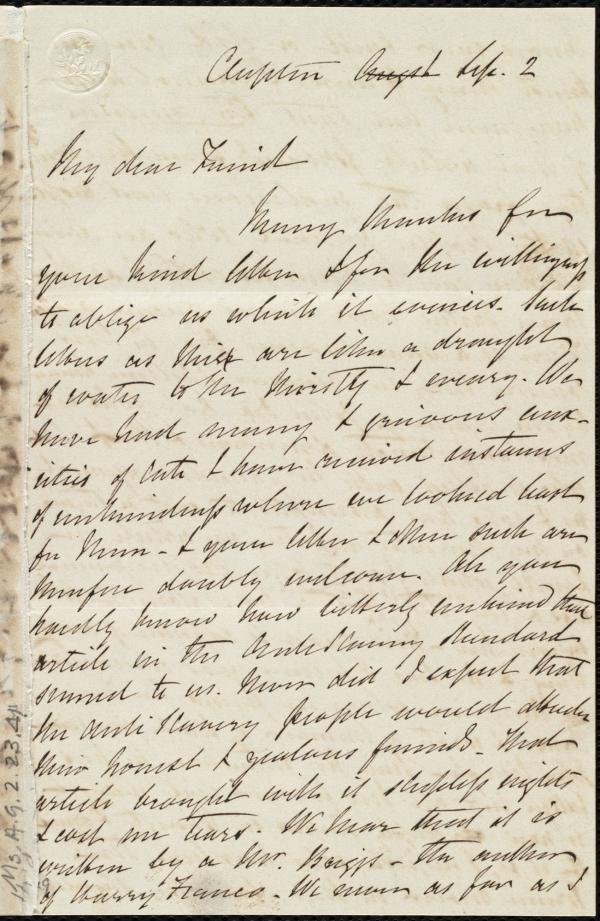 Clapton August Sep. 2
My dear Friend
Many thanks for
your kind letter & for the willingness
to oblige us which it evinces. Such
letters as this are like a draught
of water to the thirsty & weary. We
have had many & grievous anx-
ieties of late & have received instances
of unkindness where we looked least
for them - & your letter & other such are
therefore doubly welcome. Ah you
hardly know how bitterly unkind that
article in the Anti Slavery Standard
seemed to us. Never did I expect that
the Anti Slavery people would attack
their honest & zealous friends. That
article brought with it sleepless nights
& cost me tears. We hear that it is
written by a Mr. Briggs - the author
of Harry Franco. We never as far as I
Ms.A.9.2.23.4p